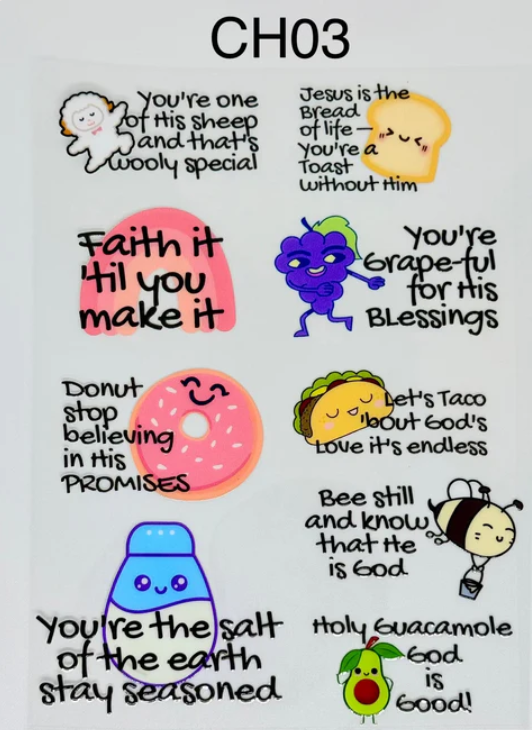 CH03
You're one
of His sheep
and that's
wooly special
Jesus is the
Bread
of life -
you're a
Toast
without Him
Faith it
'til you
make it
You're
Grape-ful
for His
BLessings
Donut
stop
believing
in His
PROMISES
Let's Taco
'bout God's
Love it's endless
Bee still
and know
that He
is God
You're the salt
of the earth
stay seasoned
Holy Guacamole
God
is
Good!